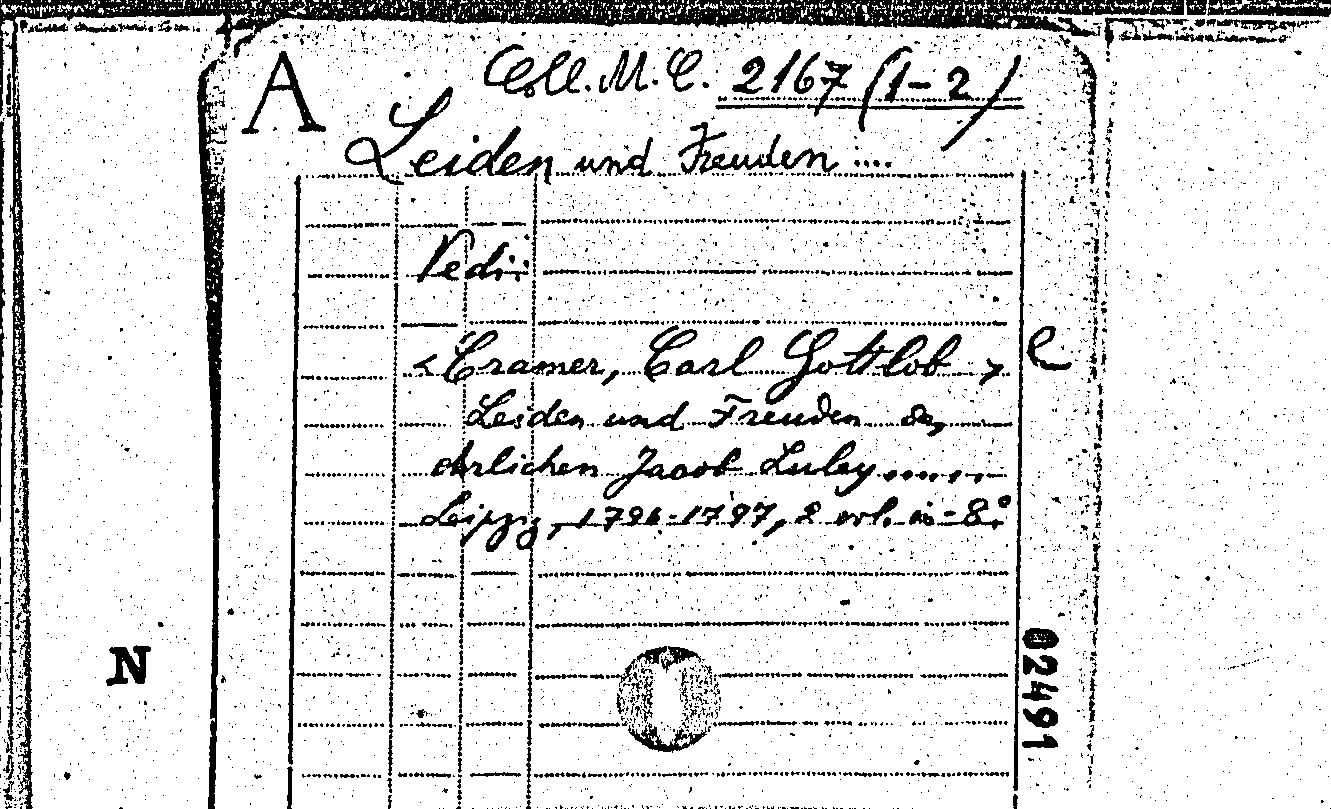 A
Coll. M. C. 2167 (1-2)
Leiden und Freuden ....
Vedi:
<Cramer, Carl Gottlob> e
Leiden und Freuden des
ehrlichen Jacob Luley......
Leipzig, 1796-1797, 2 vol. in-8º
N
02491